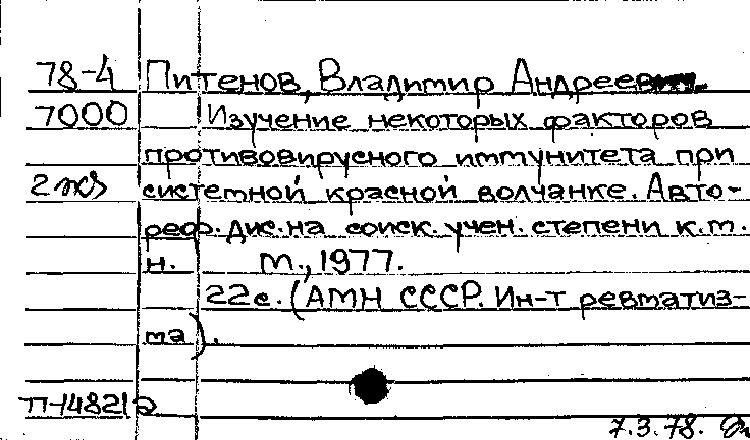 78-4 Питенов, Владимир Андреевич
7000 Изучение некоторых факторов
противовирусного иммунитета при
2 экз системной красной волчанке. Авто-
реф. дис. на соиск. учен. степени к.м.
н. М., 1977.
22с. (АМН СССР. Ин-т ревматиз-
ма).
П-14821
7.3.78.